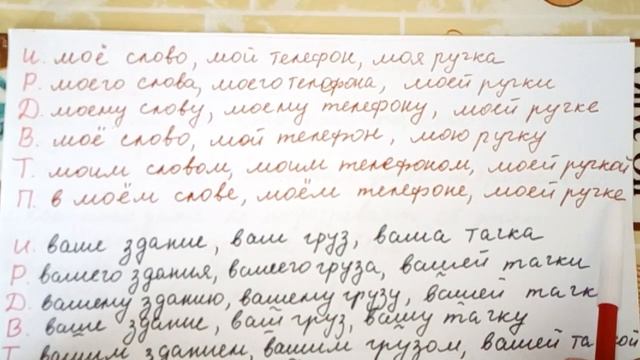 И. моё слово, мой телефон, моя ручка
Р. моего слова, моего телефона, моей ручки
Д. моему слову, моему телефону, моей ручке
В. моё слово, мой телефон, мою ручку
Т. моим словом, моим телефоном, моей ручкой
П. в моём слове, моём телефоне, моей ручке
И. ваше здание, ваш груз, ваша тачка
Р. вашего здания, вашего груза, вашей тачки
Д. вашему зданию, вашему грузу, вашей тачк
В. ваше здание, ваш груз, вашу тачку
Т. вашим зданием, вашим грузом, вашей